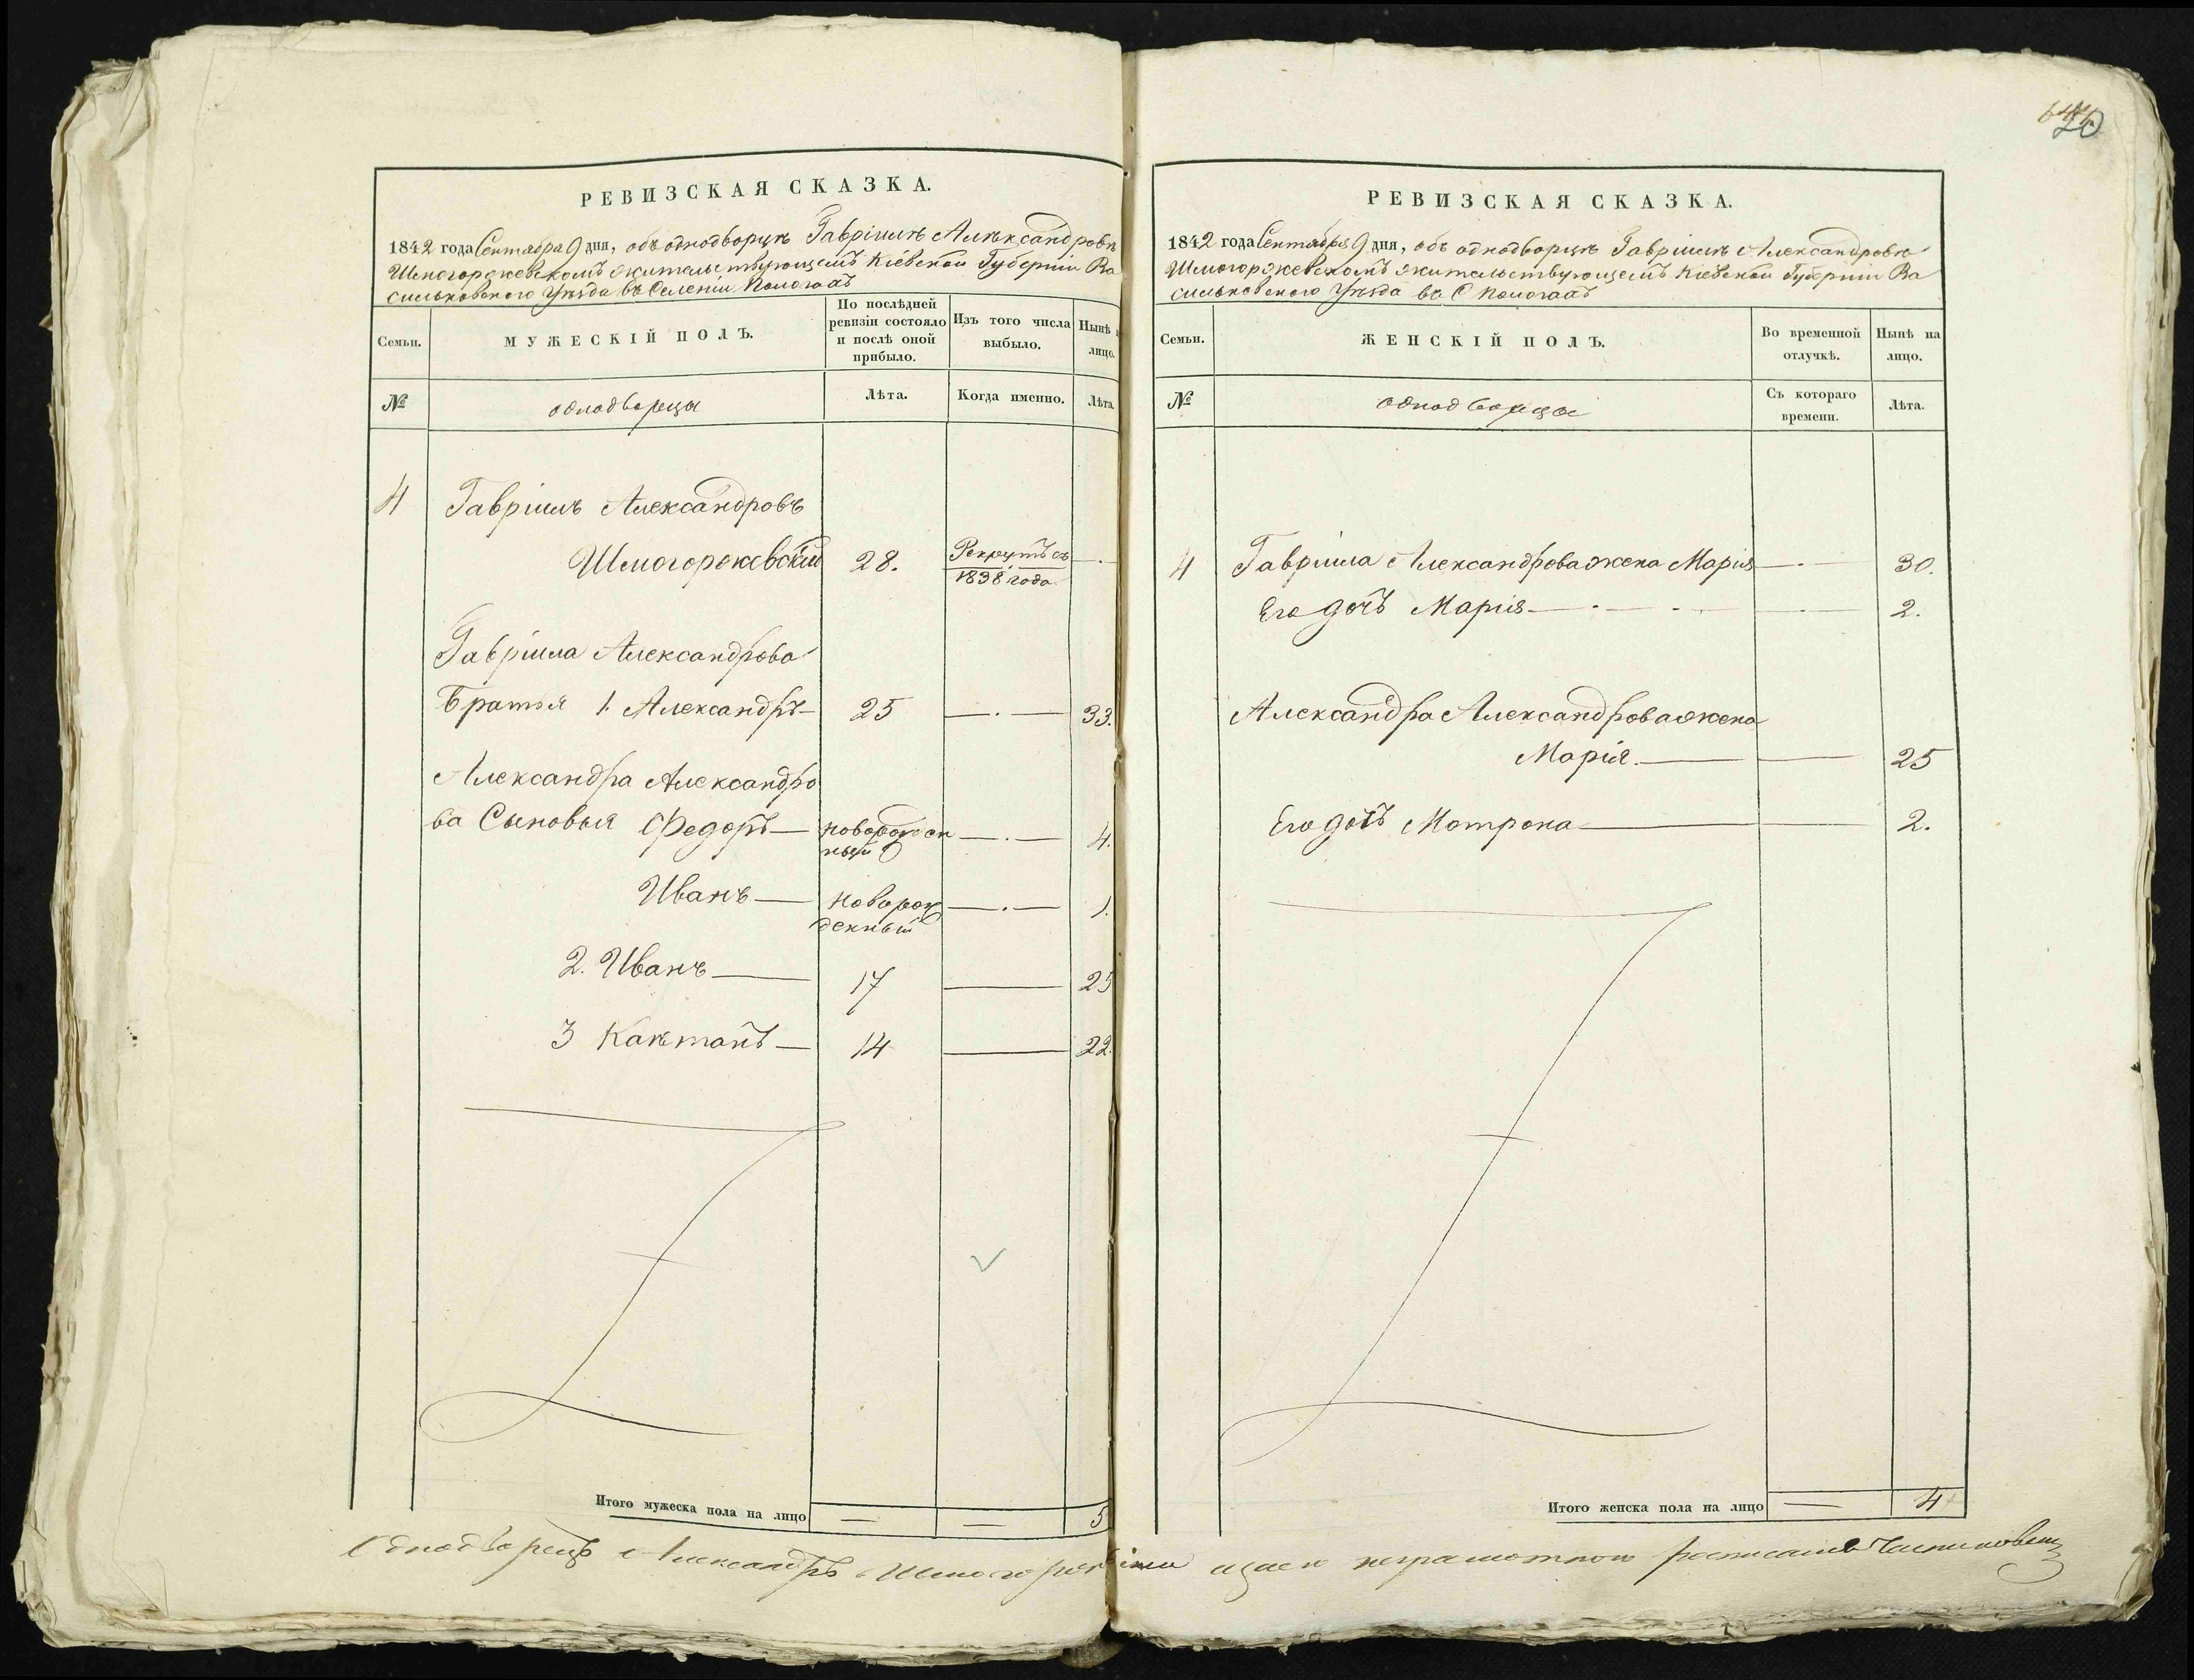 РЕВИЗСКАЯ СКАЗКА.
1842 года Сентября 9 дня, объ однодворцѣ Гавріилѣ Александровѣ
Шмогоржевскомъ жительствующемъ Кіевской Губерніи Ва
сильковскаго Уѣзда въ Селеніи
Семьи.
МУЖЕСКІЙ ПОЛЪ.
По послѣдней ревизіи состояло и послѣ оной прибыло.
Изъ того числа выбыло.
Нынѣ
лицо.
№
однодворцы
Лѣта.
Когда именно.
Лѣта.
4 Гавріилъ Александровъ
Шмогоржевскій 28. Рекрутъ съ 1838 года
Гавріила Александрова
Братья 1. Александръ 25 33.
Александра Александро
ва Сыновья Федоръ новорожден
ный 4.
Иванъ новорож
денный 1.
2. Иванъ 17 25
3 Каэтанъ 14 22.
Итого мужеска пола на лицо 5
644
20
РЕВИЗСКАЯ СКАЗКА.
1842 года Сентября 9 дня, объ однодворцѣ Гавріилѣ Александровѣ
Шмогоржевскомъ жительствующемъ Кіевской Губерніи Ва
сильковскаго Уѣзда въ С
Семьи.
ЖЕНСКІЙ ПОЛЪ.
Во временной отлучкѣ.
Нынѣ на лицо.
№
однодворцы
Съ котораго времени.
Лѣта.
4 Гавріила Александрова жена Марія 30.
Его дочь Марія 2.
Александра Александрова жена
Марія. 25
Его дочь Мотрона 2.
Итого женска пола на лицо 4
Однодворецъ Александръ Шмогоржевскій а за него неграмотного росписался